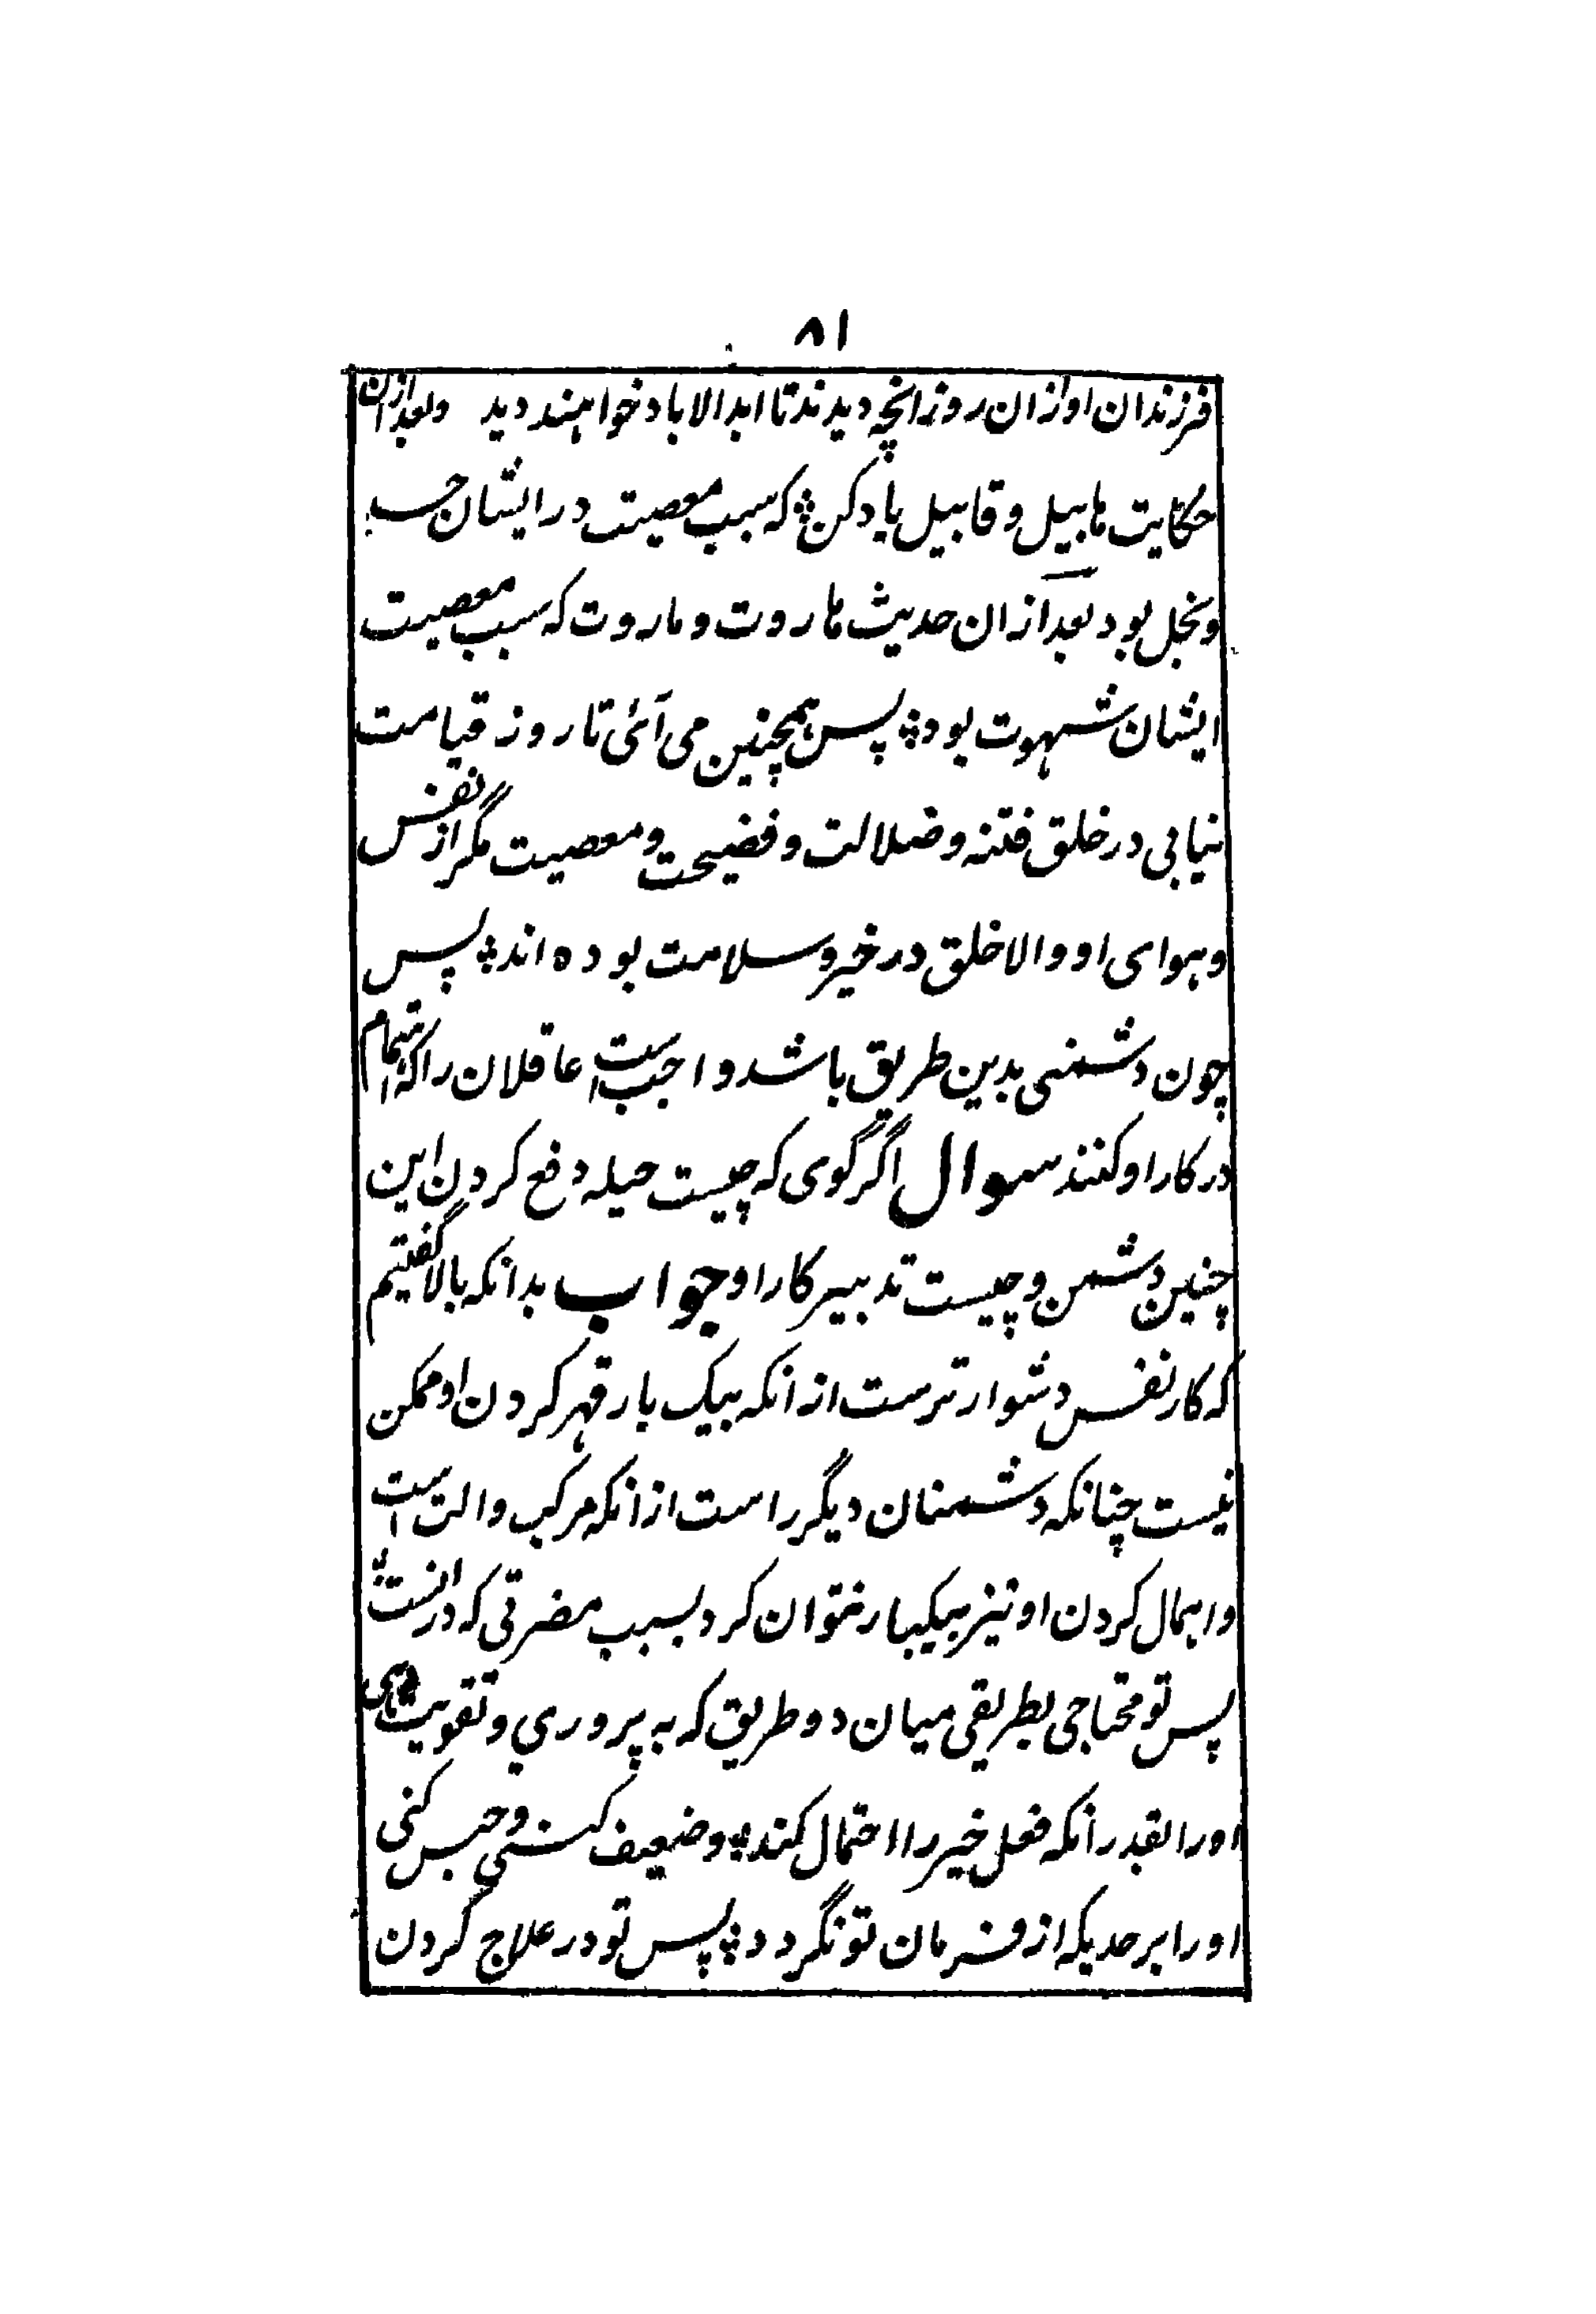 ۸۱
فرزندان او ازان روز انچه دیدند تا ابد الاباد خواهند دید وبعد ازان
حکایت هابیل و قابیل یاد کن ؞ که سبب معصیت در ایشان حسد
وبخل بود بعد ازان حدیث هاروت و ماروت که سبب معصیت
ایشان شهوت بود ؞ پس همچنین می آئی تا روز قیامت
نیابی در خلق فتنه و ضلالت و فضیحت و معصیت مگر از نفس
وهوای او والا خلق در خیر و سلامت بوده اند ؞ پس
چون دشمنی بدین طریق باشد واجب است عاقلان را که اهتمام
در کار او کنند سوال اگر گوی که چیست حیله دفع کردن این
چنین دشمن و چیست تدبیر کار او جواب بدانکه بالا گفتیم
که کار نفس دشوار ترست از انکه بیک بار قهر کردن او ممکن
نیست چنانکه دشمنان دیگر راست از انکه مرکب والت است
واهمال کردن او نیز بیکبار نتوان کرد بسبب مضرتی که در انست ؞
پس تو محتاجی بطریقی میان دو طریق که به پروري و تقویت
اورا بقدر انکه فعل خیر را احتمال کند ؞ وضعیف کنی و حبس کنی
اورا بر حدیکه از فرمان تو نگردد ؞ پس تو در علاج کردن